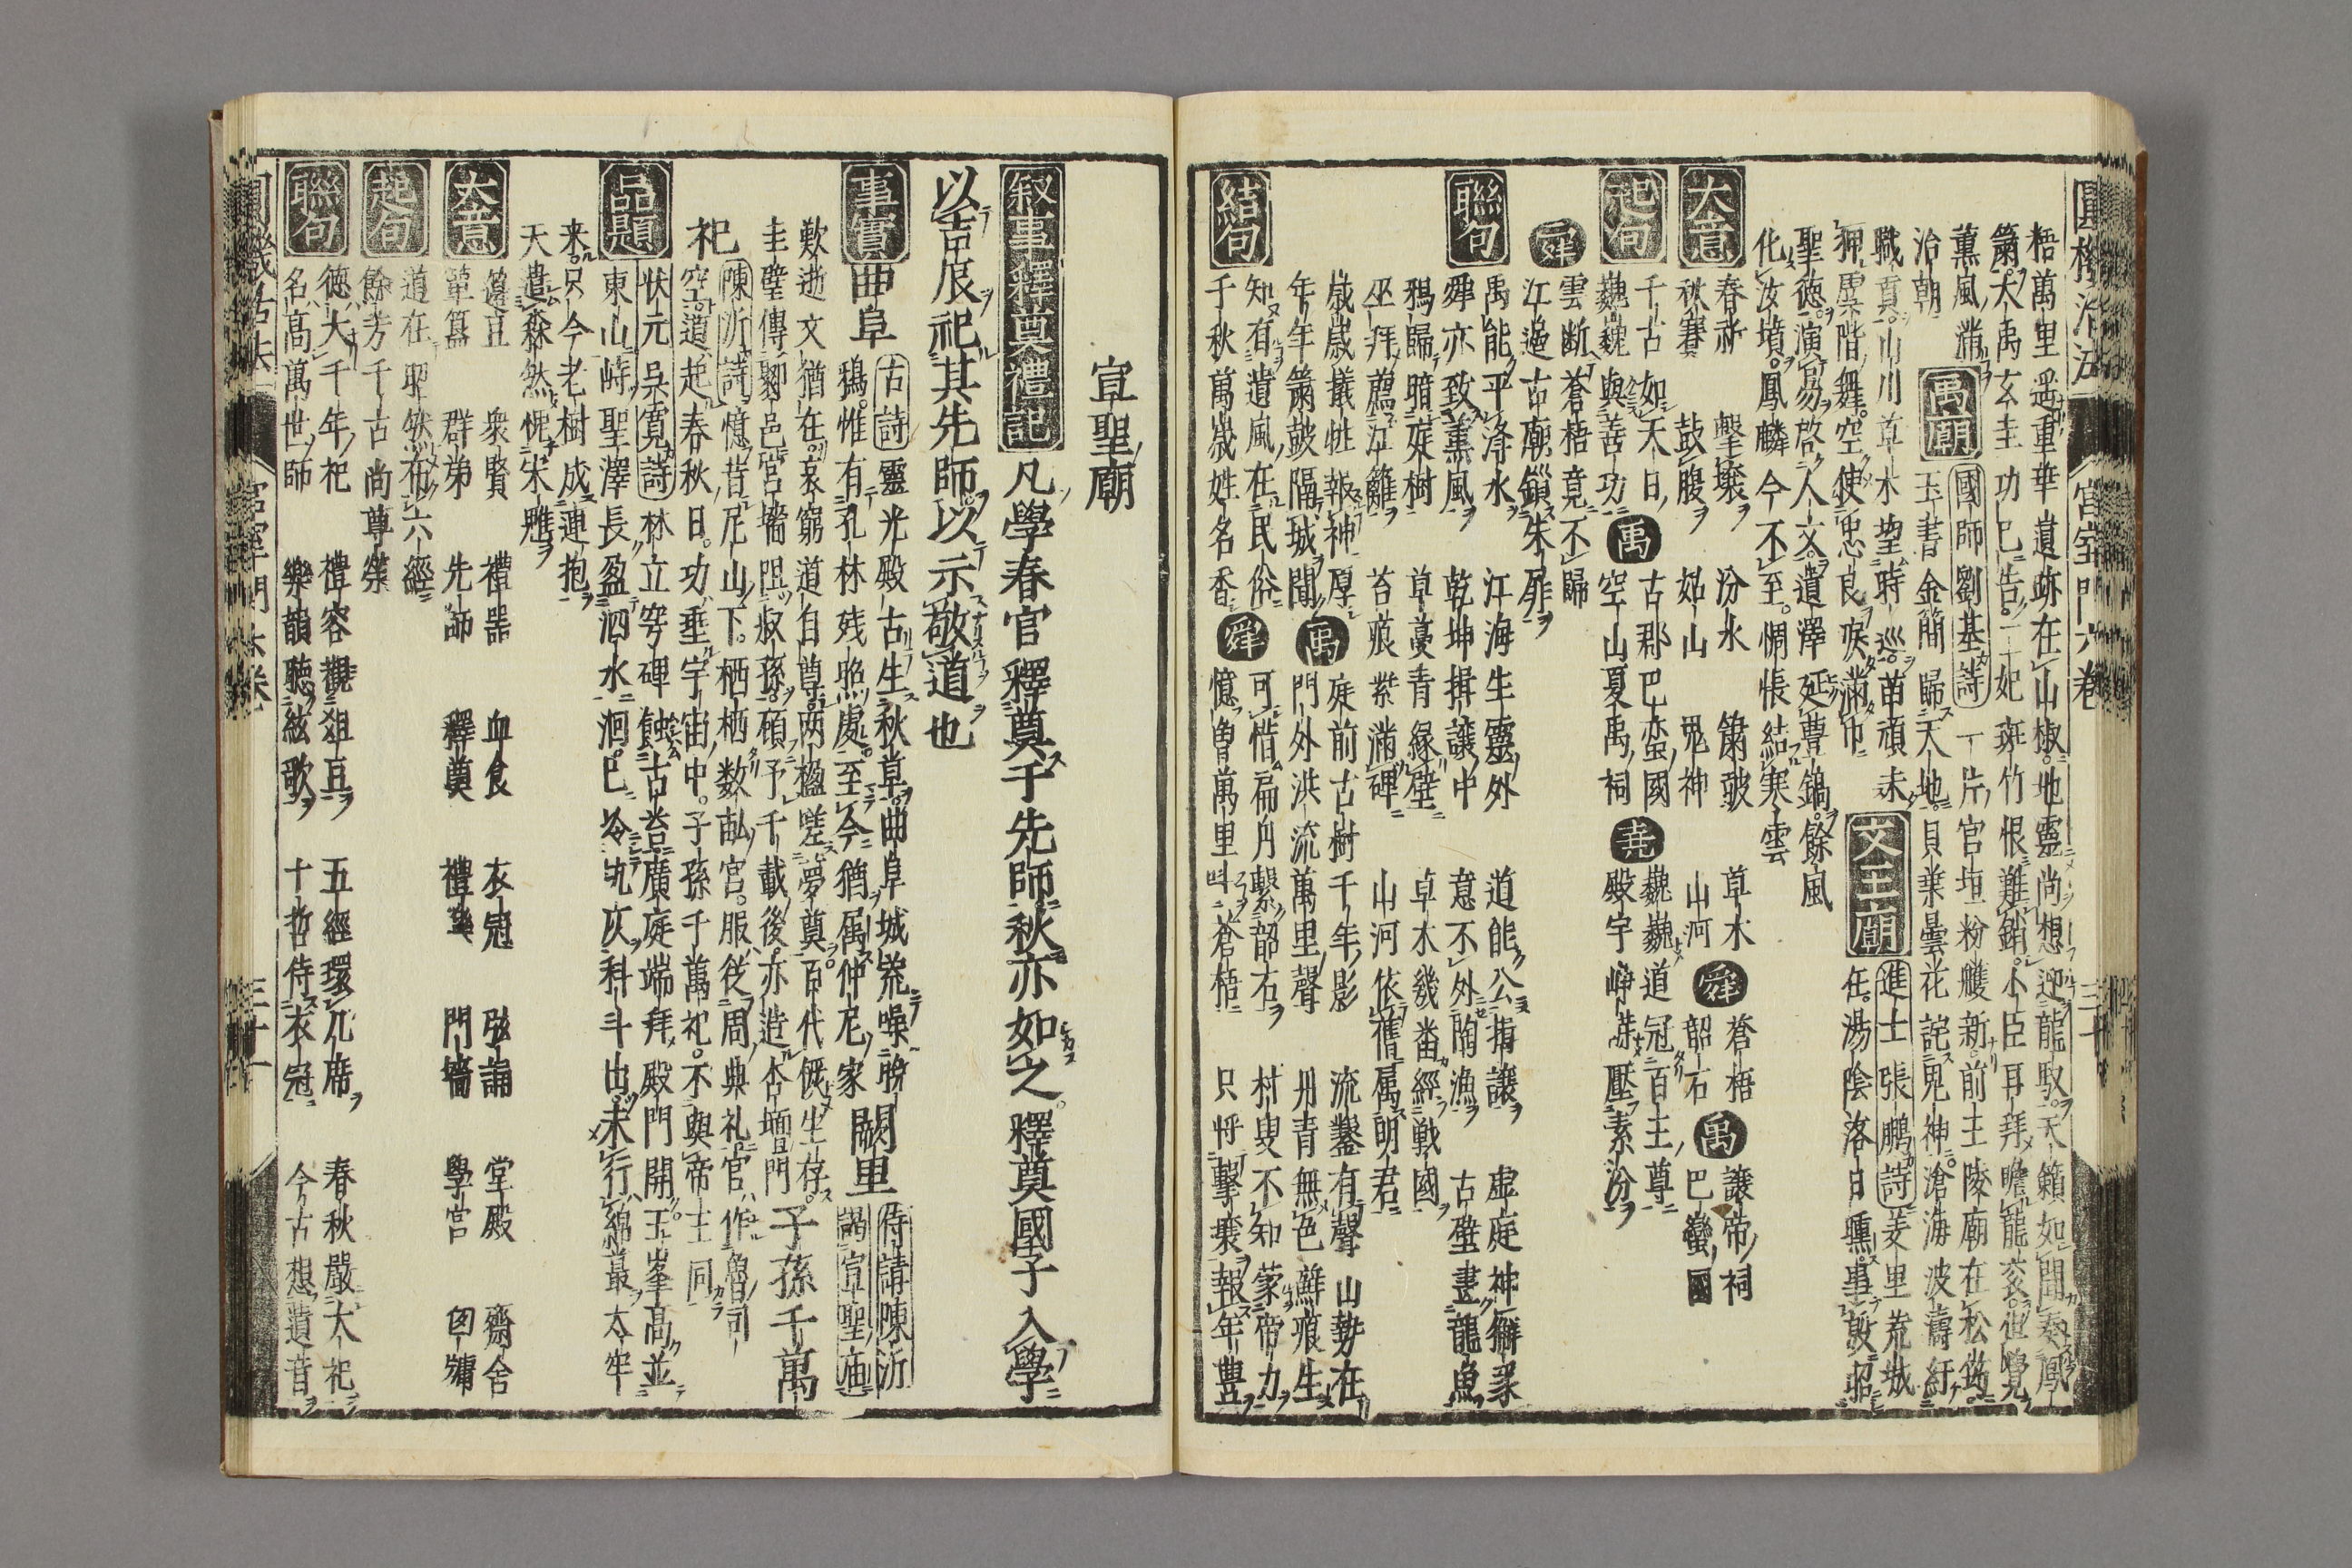 圓機活法 宮室門六卷 三十
梧萬里遥重華遺跡在山椒地靈尚想迎龍馭天籟如聞奏鳳
簫 大禹玄圭功已告二妃斑竹恨難銷小臣再拜瞻龍衮世覺
薫風滿
治朝 禹廟 國師劉基詩 玉書金簡歸天地
一片宮垣粉艧新前王陵廟在松筠
貝葉曇花詫鬼神滄海波濤紆
職貢山川草木望時巡苗頑未
狎虞階舞空使忠良淚滿巾 文王廟 進士張鵬詩 羑里荒城
在湯陰洛日曛事殷昭
聖德演易啓人文遺澤延豊鎬餘風
化汝墳鳳麟今不至惆悵結寒雲
大意 春祈 擊壤 汾水 簫皷 草木
秋賽 鼓腹 姑山 鬼神 山河 舜 蒼梧
韶石 禹 讓帝祠
巴蠻國
起句 千古如天日
巍巍與善功 禹 古郡巴蛮國
空山夏禹祠 堯 巍巍道冠百王尊
殿宇崢嶸壓素汾
舜 雲断蒼梧竟不歸
江邉古廟鎻朱扉
聯句 禹能平洚水 江海生靈外 道能公揖讓 虚庭神獬豸
舜亦致薫風 乾坤揖讓中 意不外陶漁 古壁畫龍魚
鴉歸暗庭樹 草蔓青縁壁 草木幾畨經戦國
巫拜薦江籬 苔痕紫滿碑 山河依舊属明君
歳歳議牲報神厚 庭前古樹千年影 流鑿有聲山勢在
年年簫皷隔城聞 禹 門外洪流萬里聲 丹青無色蘚痕生
結句 知有遺風在民俗 可惜扁舟繫韶石 村叟不知蒙帝力
千秋萬歳姓名香 舜 憶曽萬里叫蒼梧 只將擊壤報年豊
宣聖廟
叙事釋奠禮記 凡學春官釋奠于先師秋亦如之釋奠國子入學
以吉辰祀其先師以示敬道也
事實 曲阜 古詩 靈光殿古生秋草曲阜城荒噪晩
鴉惟有孔林残照處至今猶属仲尼家 闕里 侍請陳沂
謁宣聖廟
歎逝文猶在哀窮道自尊両楹嗟夢奠百代儼生存
圭璧傳鄒邑宮墻限叔孫碩予千載後亦造杏壇門 子孫千萬
祀 陳沂詩 憶昔尼山下栖栖数畝宮服従周典礼官作魯司
空道起春秋日功垂宇宙中子孫千萬祀不與帝王同
品題 状元吳寛詩 林立穹碑蝕古苔廣庭端拜殿門開玉峯高並
東山峙聖澤長盈泗水洄已冷坑灰科斗出未行綿蕞太牢
来只今老樹成連抱
天遣森然愧宋魋
大意 籩豆 衆賢 禮噐 血食 衣冠 弦誦 堂殿 齋舍
簞簋 群弟 先師 釋奠 禮樂 門墻 學宮 囪牖
起句 道在昭然布六經
餘芳千古尚尊榮
聯句 德大千年祀 禮容觀俎豆 五經環几席 春秋嚴大祀
名高萬世師 樂韻聴絃歌 十哲侍衣冠 今古想遺音
圓機活法 宮室門六卷 三十一